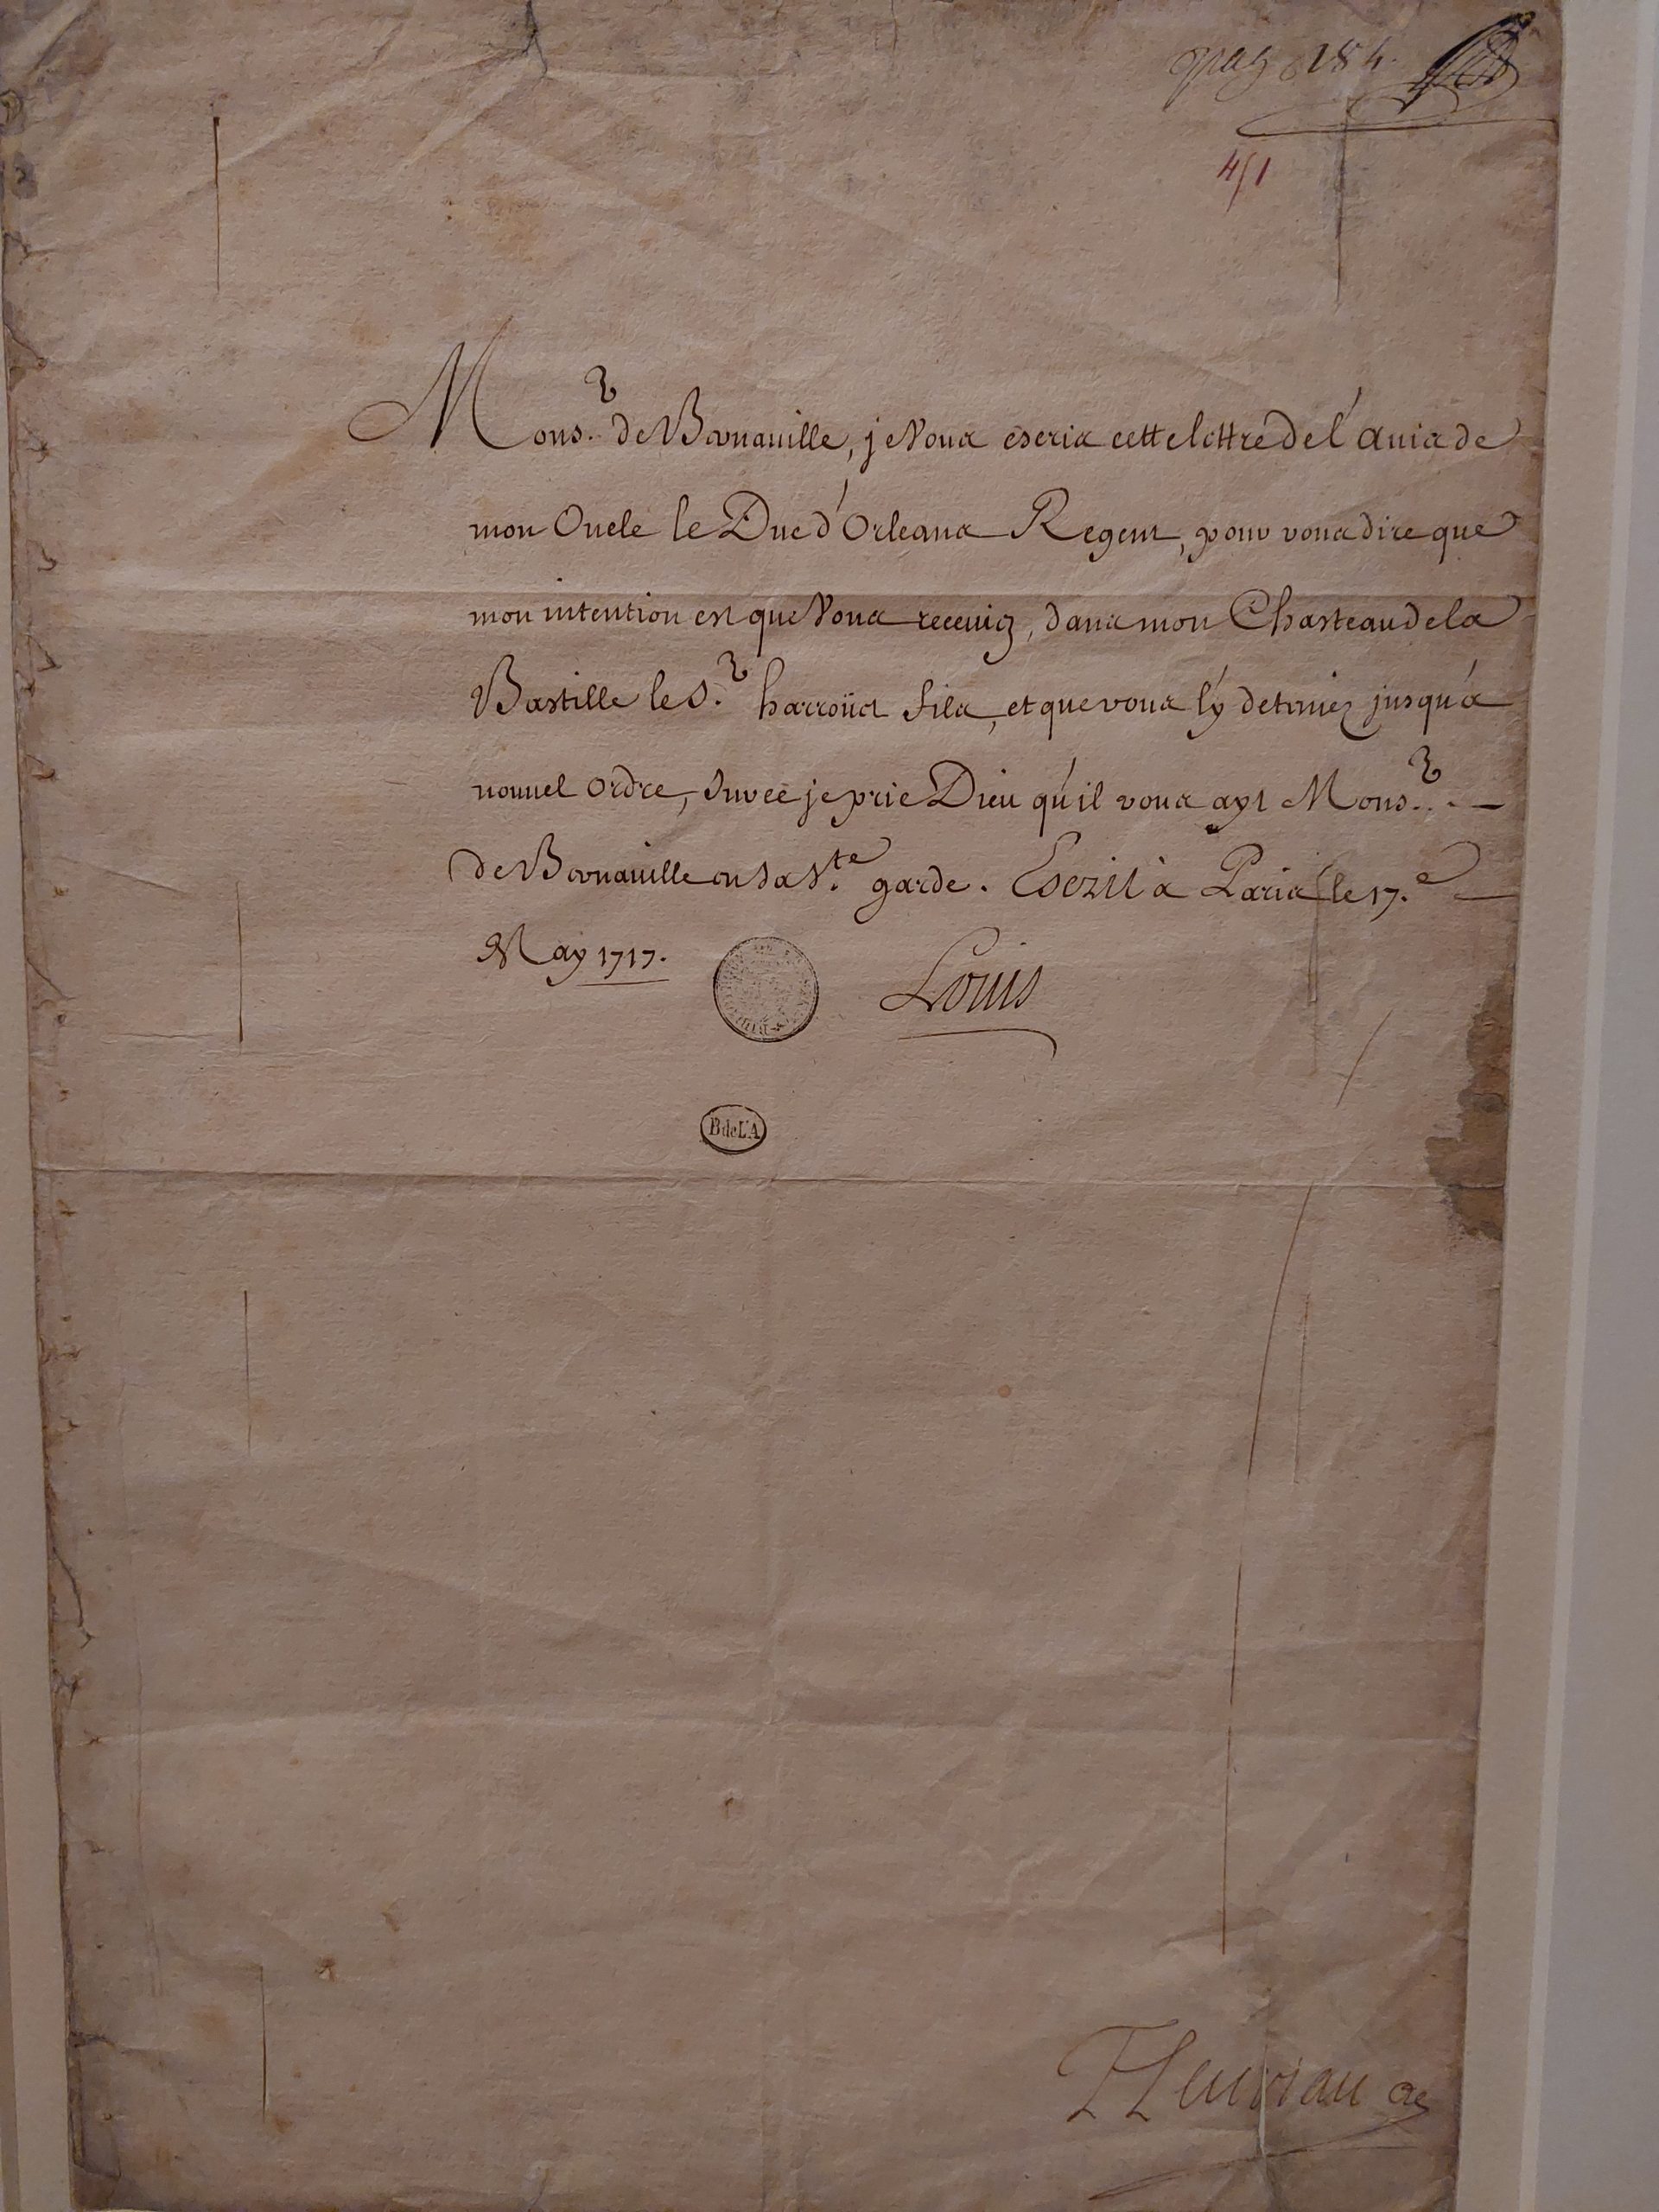 pag 184.
451
Mons.r de Bernaville, je vous escris cette lettre de l'avis de
mon Oncle le Duc d'Orleans Regent, pour vous dire que
mon intention est que vous receviez, dans mon Chasteau de la
Bastille le S.r harroüet fils, et que vous l'y deteniez jusqu'à
nouvel ordre, Surce je prie Dieu qu'il vous ayt Mons.r
de Bernaville en sa S.te garde. Escrit à Paris le 17.e
May 1717.
Louis
BdeL'A